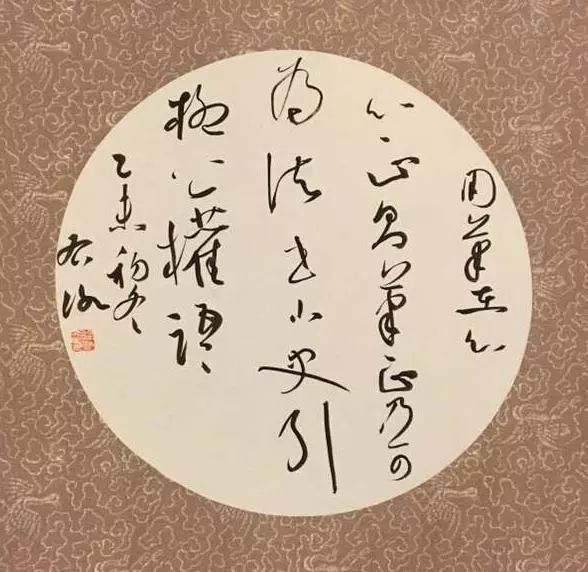 用筆在心
心正則筆正乃可
為法書小史引
柳公權語
乙未初冬